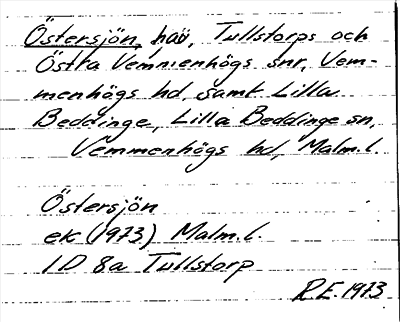 Östersjön, hav, Tullstorps och
Östra Vemmenhögs snr, Vem-
menhögs hd, samt Lilla
Beddinge, Lilla Beddinge sn,
Vemmenhögs hd, Malm.l.
Östersjön
ek (1973) Malm.l.
1D 8a Tullstorp
R.E. 1973